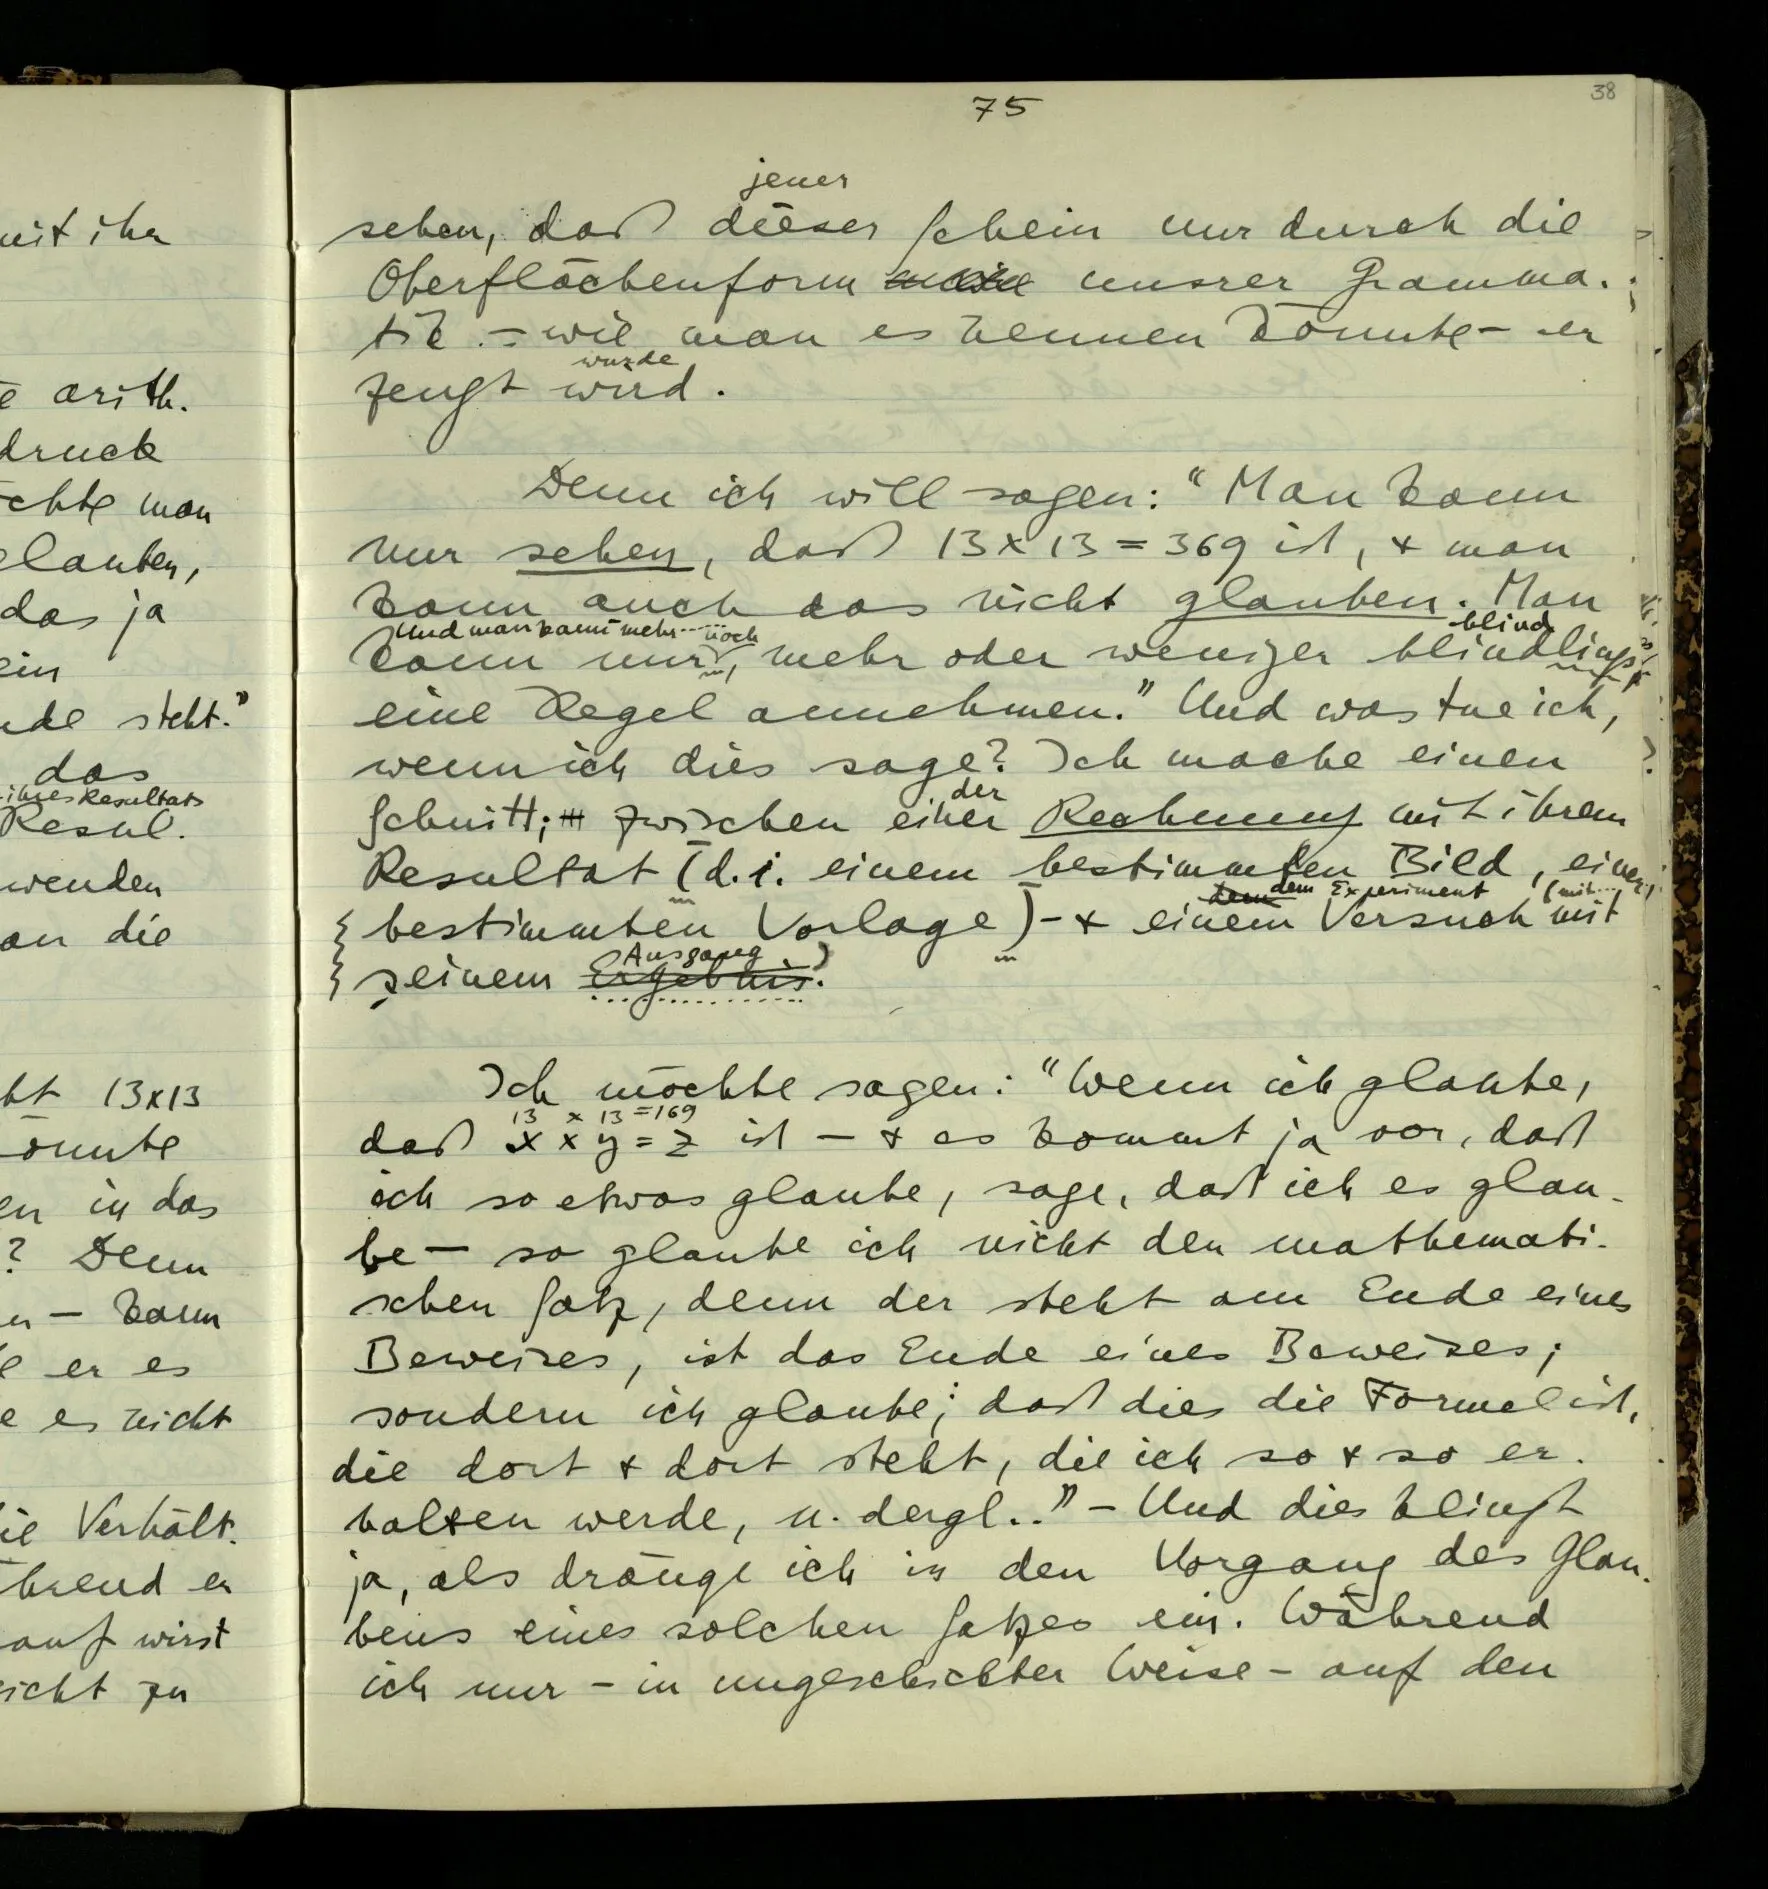 mit ihr
arith.
druck
chte man
glauben,
das ja
ein
nde steht."
das
ihres Resultats
Resul.
wenden
an die
13x13
önnte
en in das
? Denn
– kann
er es
e es nicht
ie Verhält.
ährend er
auf wirst
nicht zu
75
38
jener
sehen, daß dieser Schein nur durch die
Oberflächenform unsrer Gramma.
tik – wie man es nennen könnte – er
wurde
zeugt wird.
Denn ich will sagen: "Man kann
nur sehen, daß 13x13=369 ist, & man
kann auch das nicht glauben. Man
Und man kann mehr ... noch blind
kann nur, mehr oder weniger blindlings
eine Regel annehmen." Und was tue ich,
wenn ich dies sage? Ich mache einen
der
Schnitt; zwischen einer Rechnung mit ihrem
Resultat (d.i. einem bestimmten Bild, einer
dem dem Experiment (mit...
bestimmten Vorlage) – & einem Versuch mit
Ausgang)
seinem Ergebnis.
Ich möchte sagen: "Wenn ich glaube,
13 x 13=169
daß x x y = z ist – & es kommt ja vor, daß
ich so etwas glaube, sage, daß ich es glau-
be – so glaube ich nicht den mathemati-
schen Satz, denn der steht am Ende eines
Beweises, ist das Ende eines Beweises;
sondern ich glaube; daß dies die Formel ist,
die dort & dort steht, die ich so & so er-
halten werde, u. dergl.." – Und dies klingt
ja, als dränge ich in den Vorgang des Glau-
bens eines solchen Satzes ein. Während
ich nur – in ungeschickter Weise – auf den